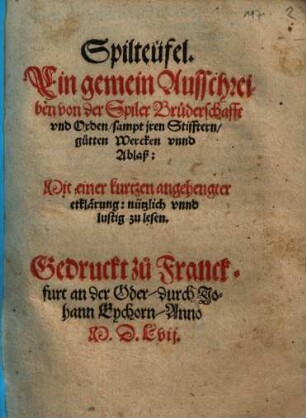 Spilteüfel.
Ein gemein Ausschrei
ben von der Spiler Brüderschafft
vnd Orden/ sampt jren Stifftern/
gütten Wercken vnnd
Ablaß:
Mit einer kurtzen angehengter
erklärung: nützlich vnnd
lustig zu lesen.
Gedruckt zů Franck-
furt an der Oder/ durch Jo-
hann Eychorn/ Anno
M. D. Lvij.